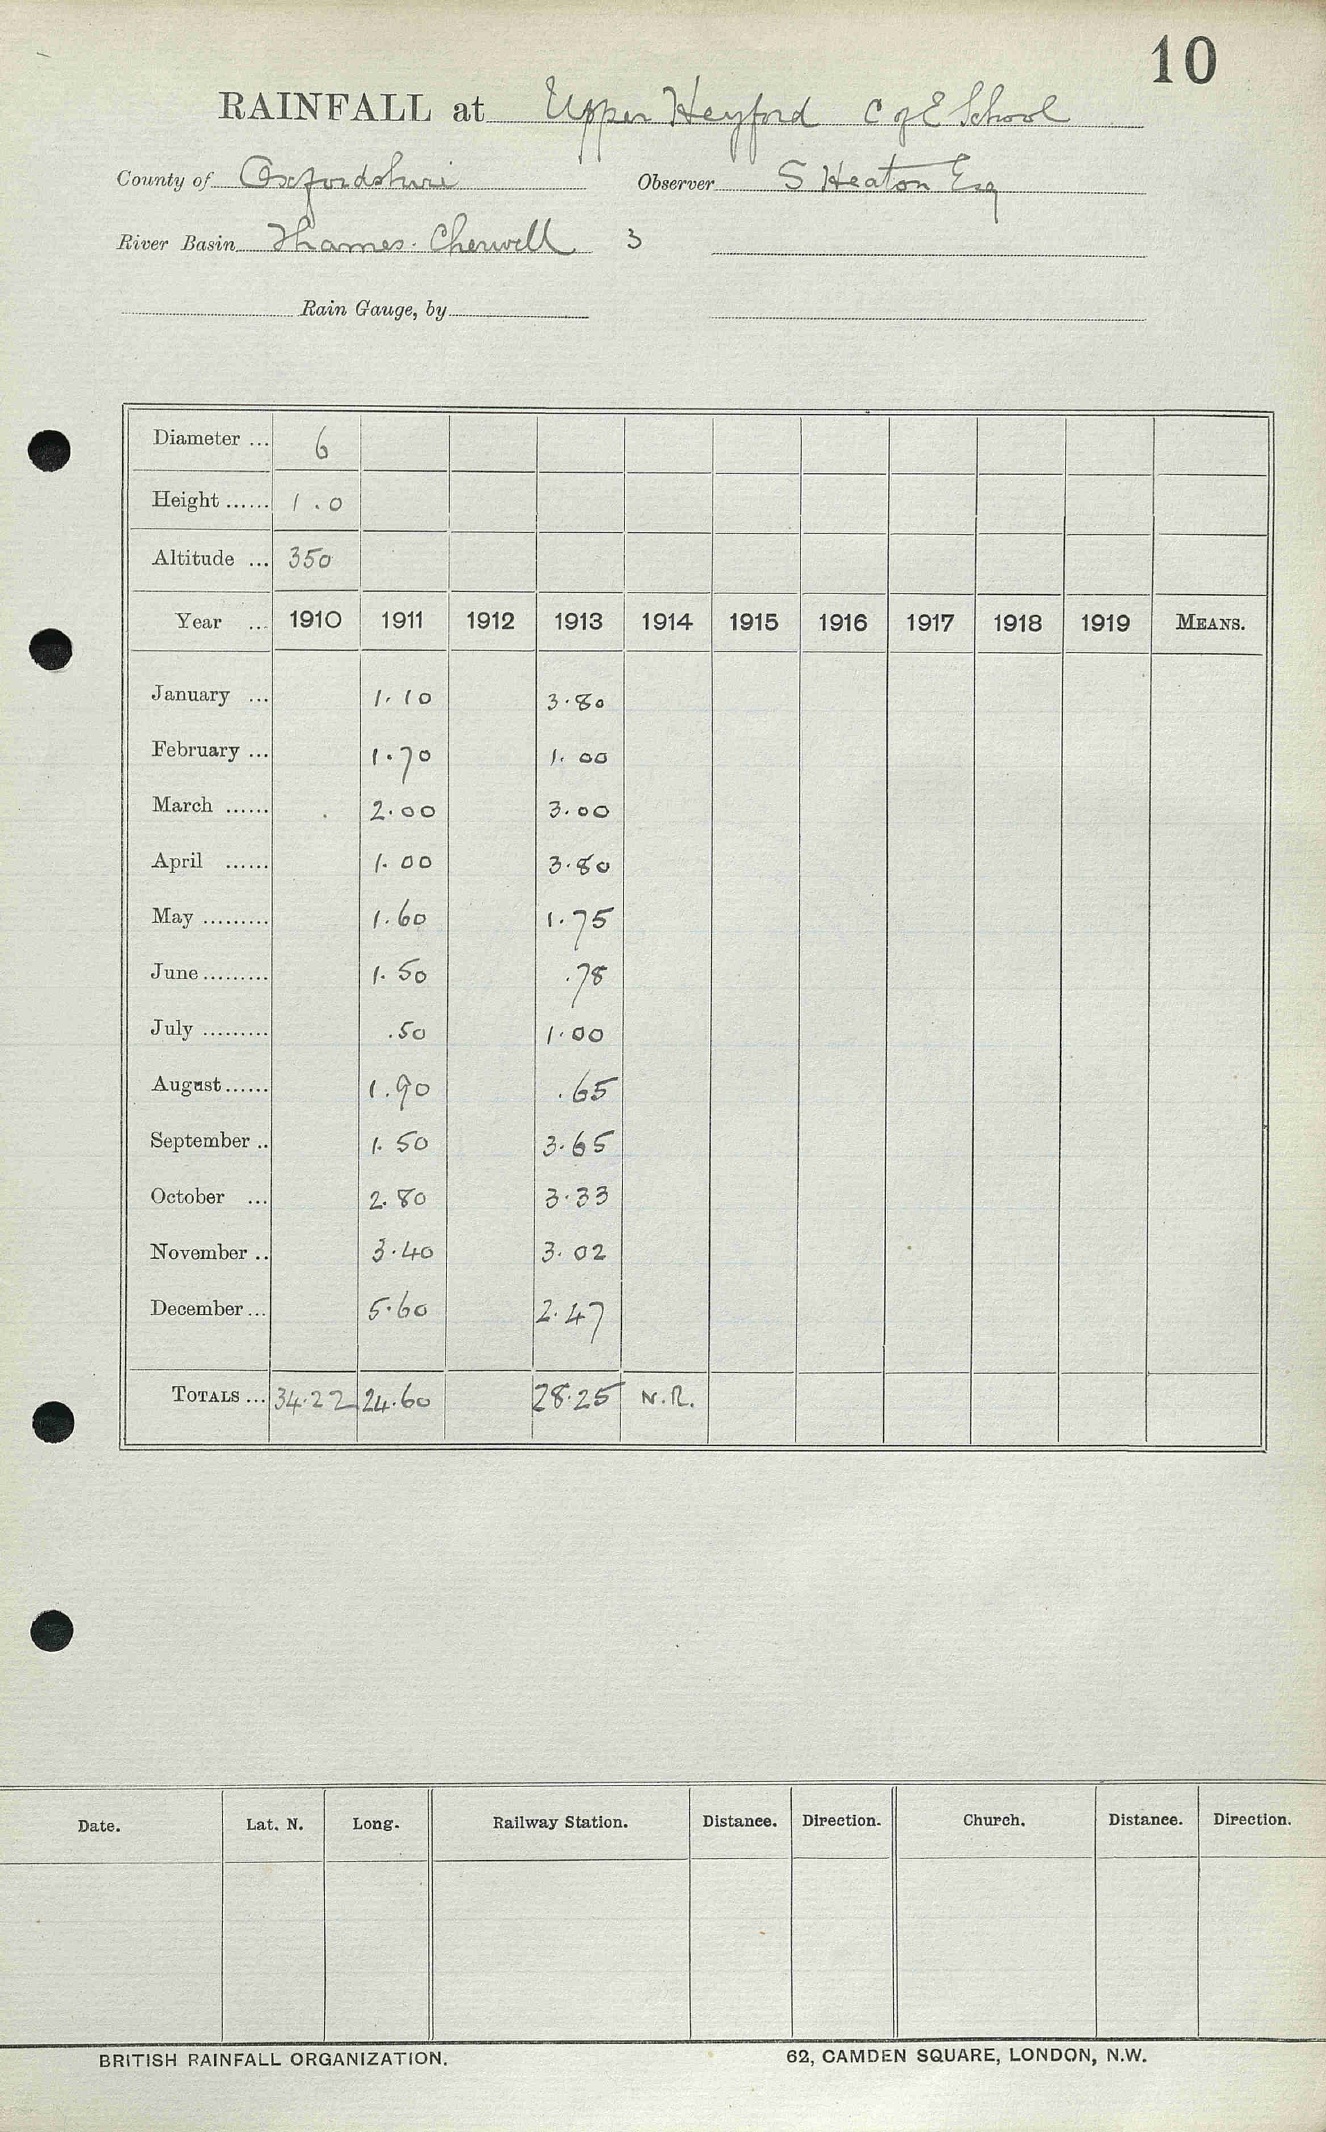 10
RAINFALL at Upper Heyford C of E School
County of Oxfordshire Observer S Heaton Esq
River Basin Thames. Cherwell 3
Rain Gauge, by
Diameter ... 6
Height ...... 1.0
Altitude ... 350
Year ... 1910 1911 1912 1913 1914 1915 1916 1917 1918 1919 MEANS.
January ... 1.10 3.80
February ... 1.70 1.00
March ...... 2.00 3.00
April ...... 1.00 3.80
May ......... 1.60 1.75
June ......... 1.50 .78
July ......... .50 1.00
August ...... 1.90 .65
September .. 1.50 3.65
October ... 2.80 3.33
November .. 3.40 3.02
December ... 5.60 2.47
TOTALS ... 34.22 24.60 28.25 N.R.
Date. Lat. N. Long. Railway Station. Distance. Direction. Church. Distance. Direction.
BRITISH RAINFALL ORGANIZATION. 62, CAMDEN SQUARE, LONDON, N.W.